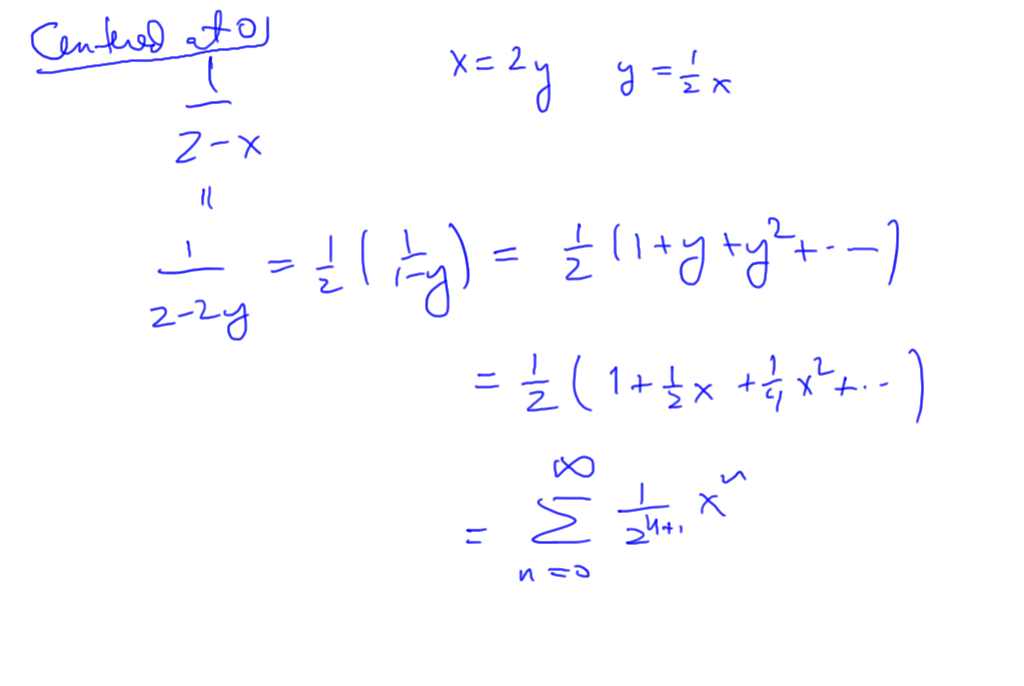 Centered at 0
x = 2y   y = 1/2 x
1/(2-x)
=
1/(2-2y) = 1/2 (1/(1-y)) = 1/2 (1 + y + y² + ...)
= 1/2 (1 + 1/2 x + 1/4 x² + ...)
= ∑_{n=0}^{∞} 1/2^{n+1} xⁿ